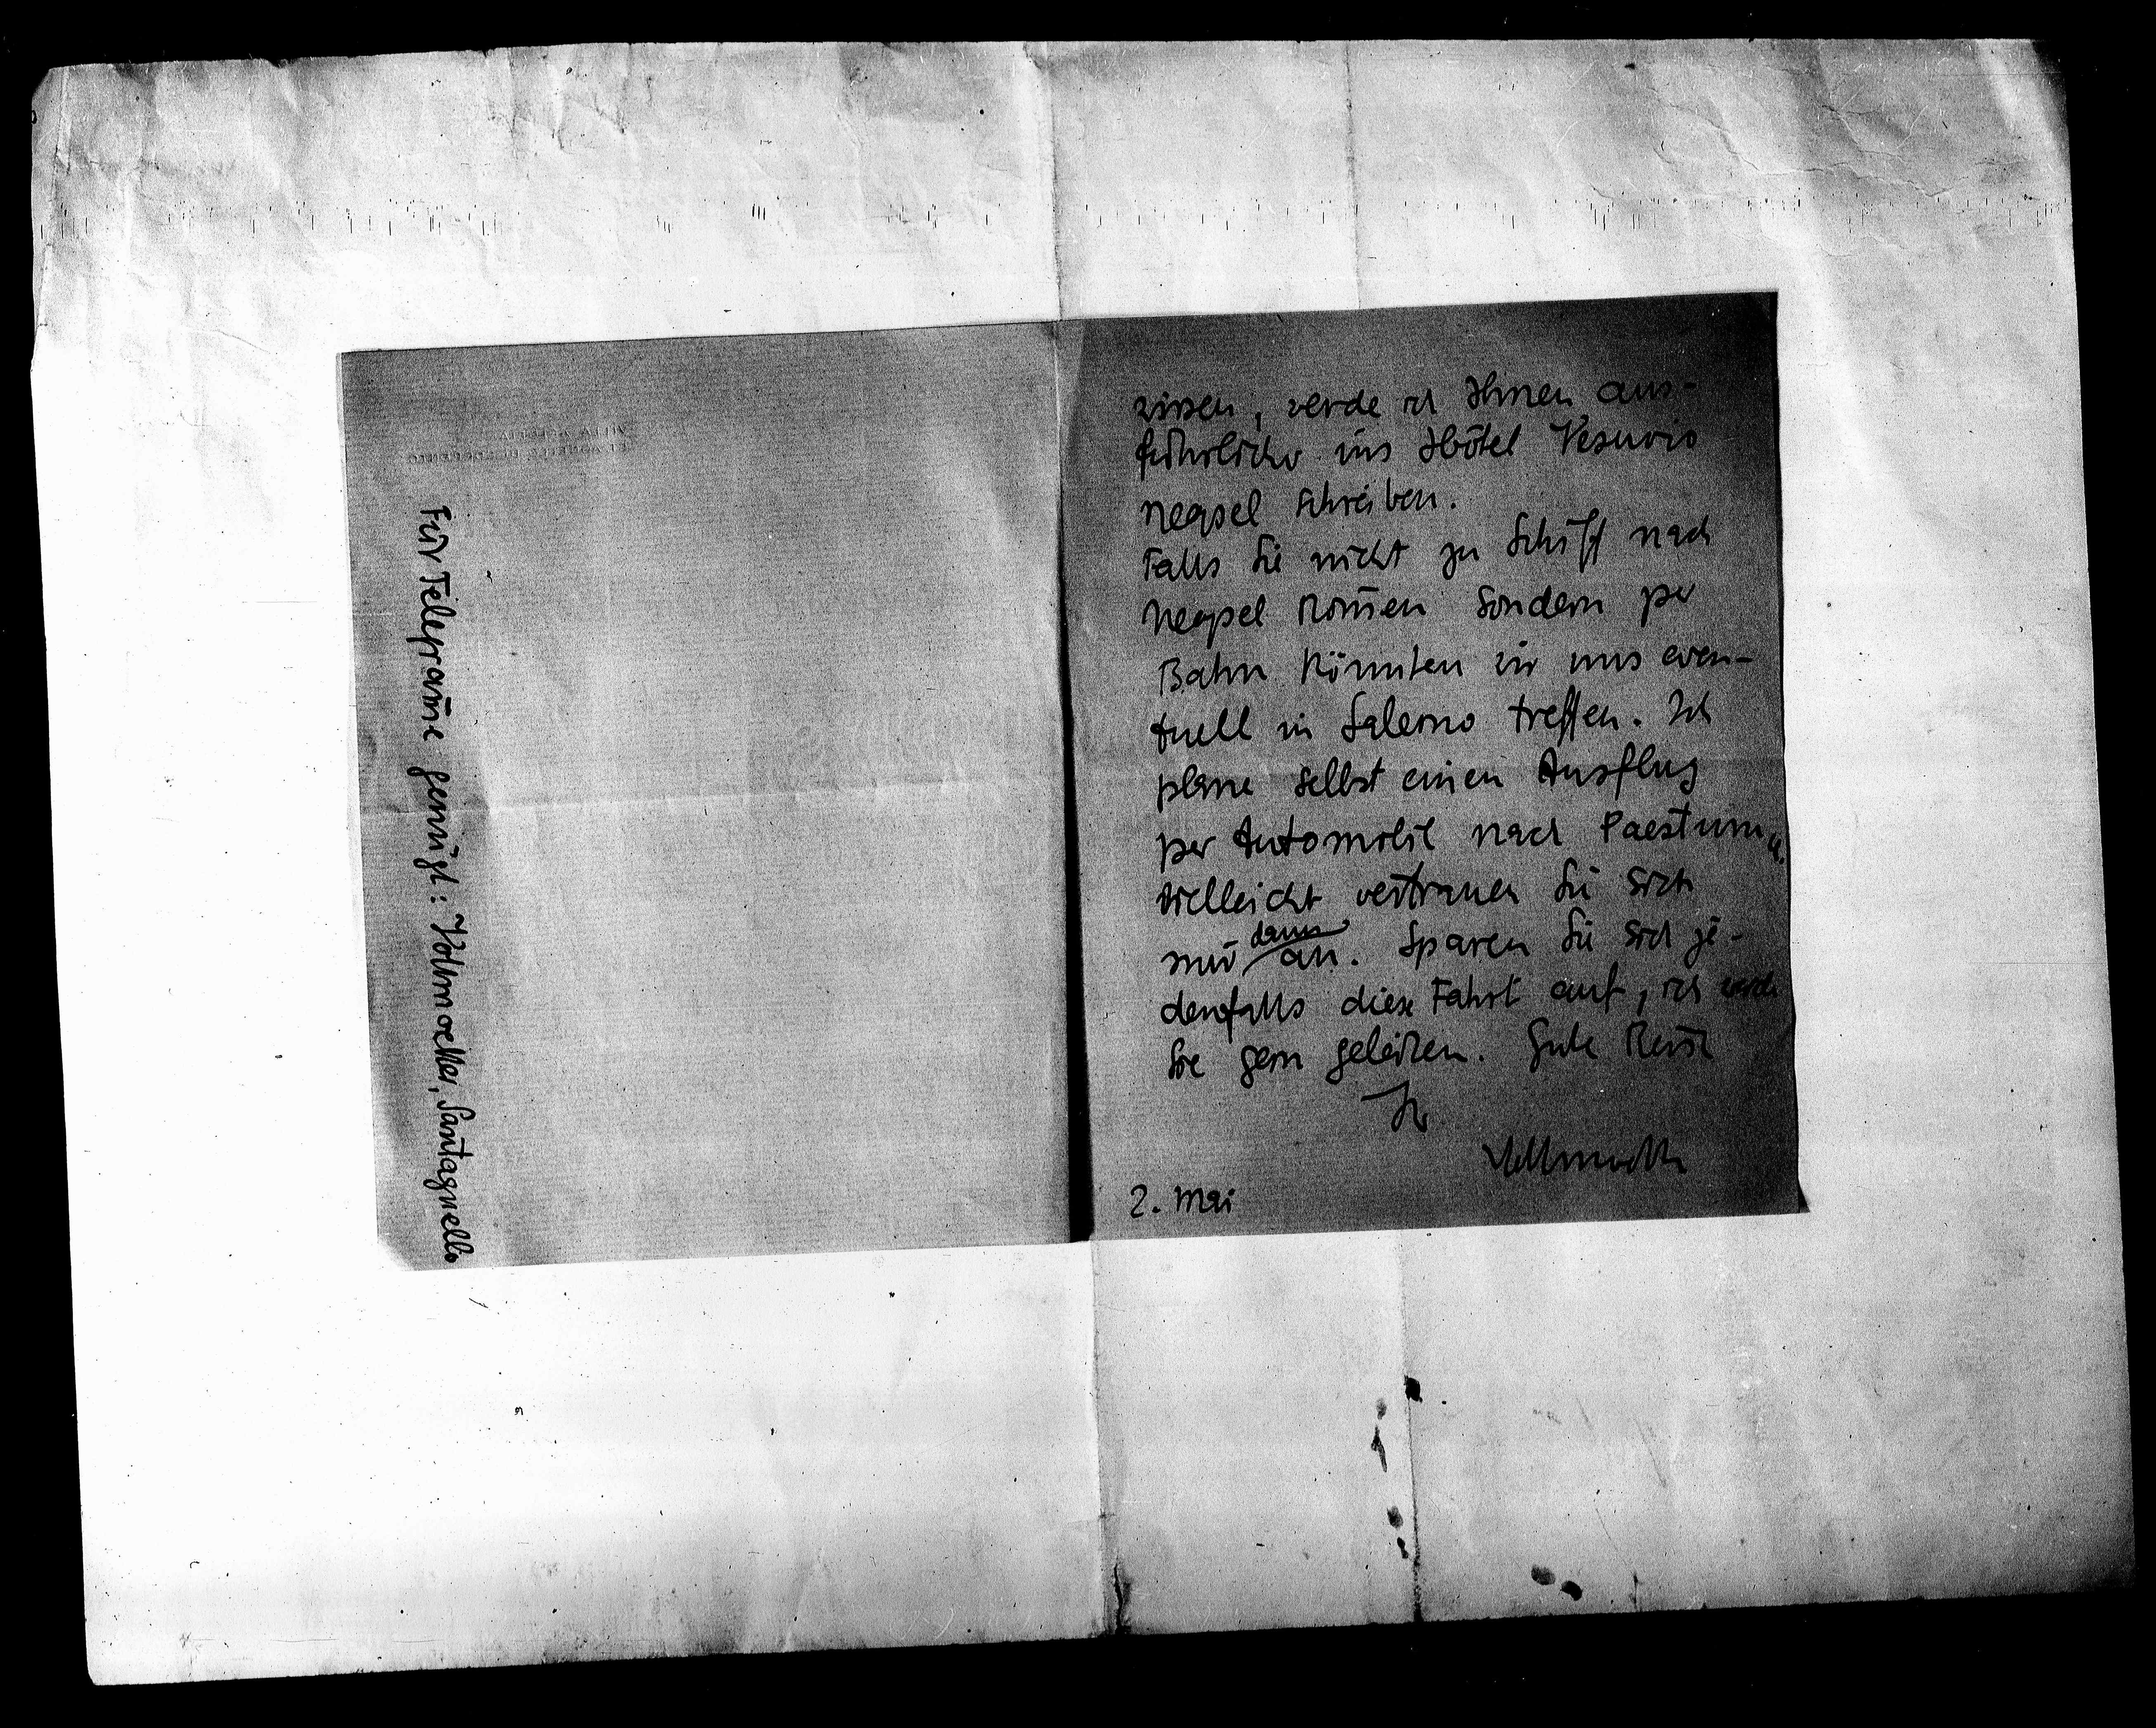 Für Telegram̅e genügt: Vollmoeller, Santagnello
wissen, werde ich Ihnen aus-
führlicher ins Hôtel Vesuvio
Neapel schreiben.
Falls Sie nicht zu Schiff nach
Neapel kom̅en sondern per
Bahn könnten wir uns even-
tuell in Salerno treffen. Ich
plane selbst einen Ausflug
per Automobil nach Paestum u.
vielleicht vertrauen Sie sich
mir dann an. Sparen Sie sich je-
denfalls diese Fahrt auf, ich werde
Sie gern geleiten. Gute Reise
Ihr
Vollmoeller
2. Mai